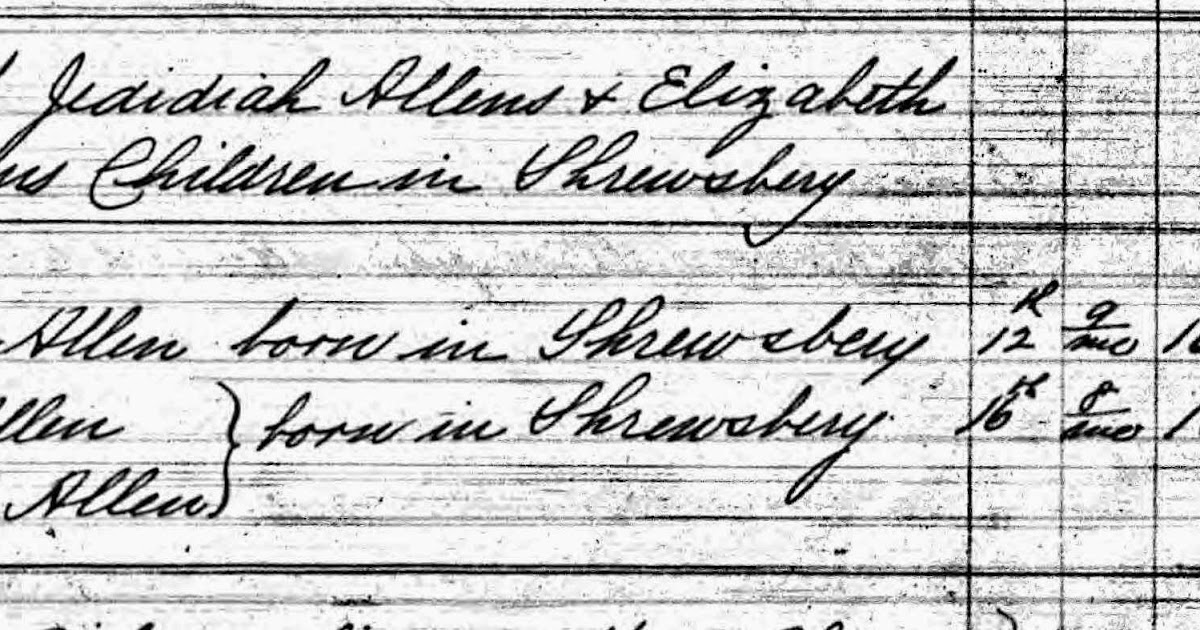 Jedidiah Allens & Elizabeth
ns Children in Shrewsbery
Allen born in Shrewsbery 12th 9 mo 1
llen } born in Shrewsbery 16th 8 mo 1
Allen